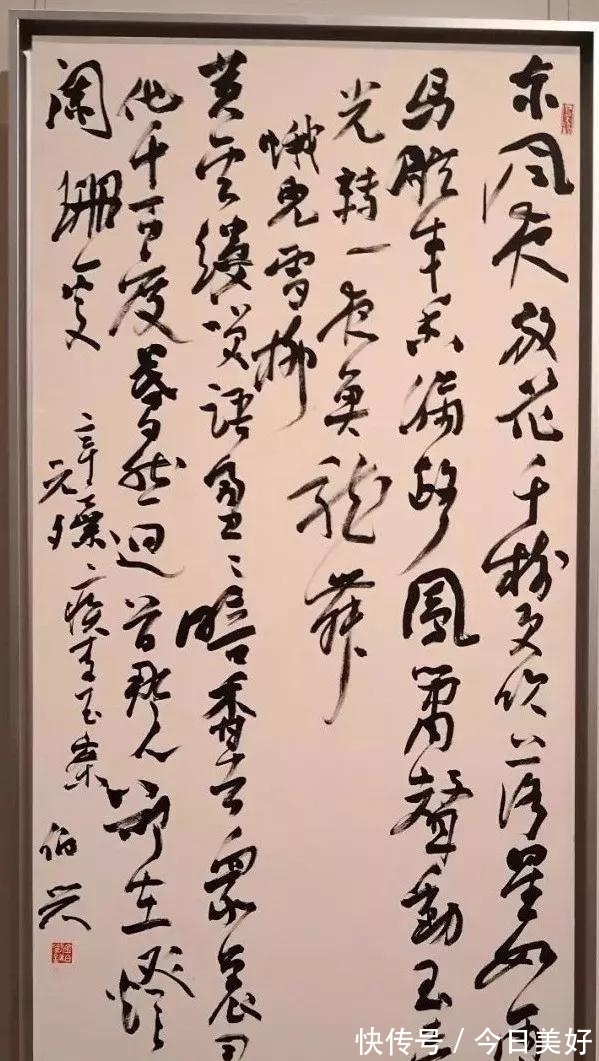 东风夜放花千树更吹落星如
马雕车香满路凤箫声动玉
光轉一夜魚龍舞
蛾兒雪柳
黄金缕笑语盈〻暗香去众里寻
他千百度蓦然迴首那人却在灯
阑珊处
元夕
青玉案
快传号 / 今日美好